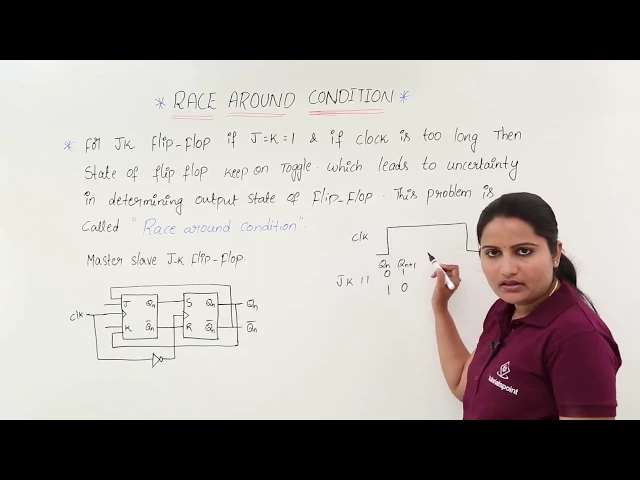 * RACE AROUND CONDITION *
* For JK flip-flop if J=K=1 & if clock is too long Then
State of flip flop keep on Toggle. which leads to uncertainty
in determining output state of flip-flop. This problem is
Called "Race around condition".
Master slave J-K flip-flop.
clk
Qn Qn+1
JK 11 0 1
1 0
J Qn S Qn Qn
clk
K Q̅n R Q̅n Q̅n
tutorialspoint